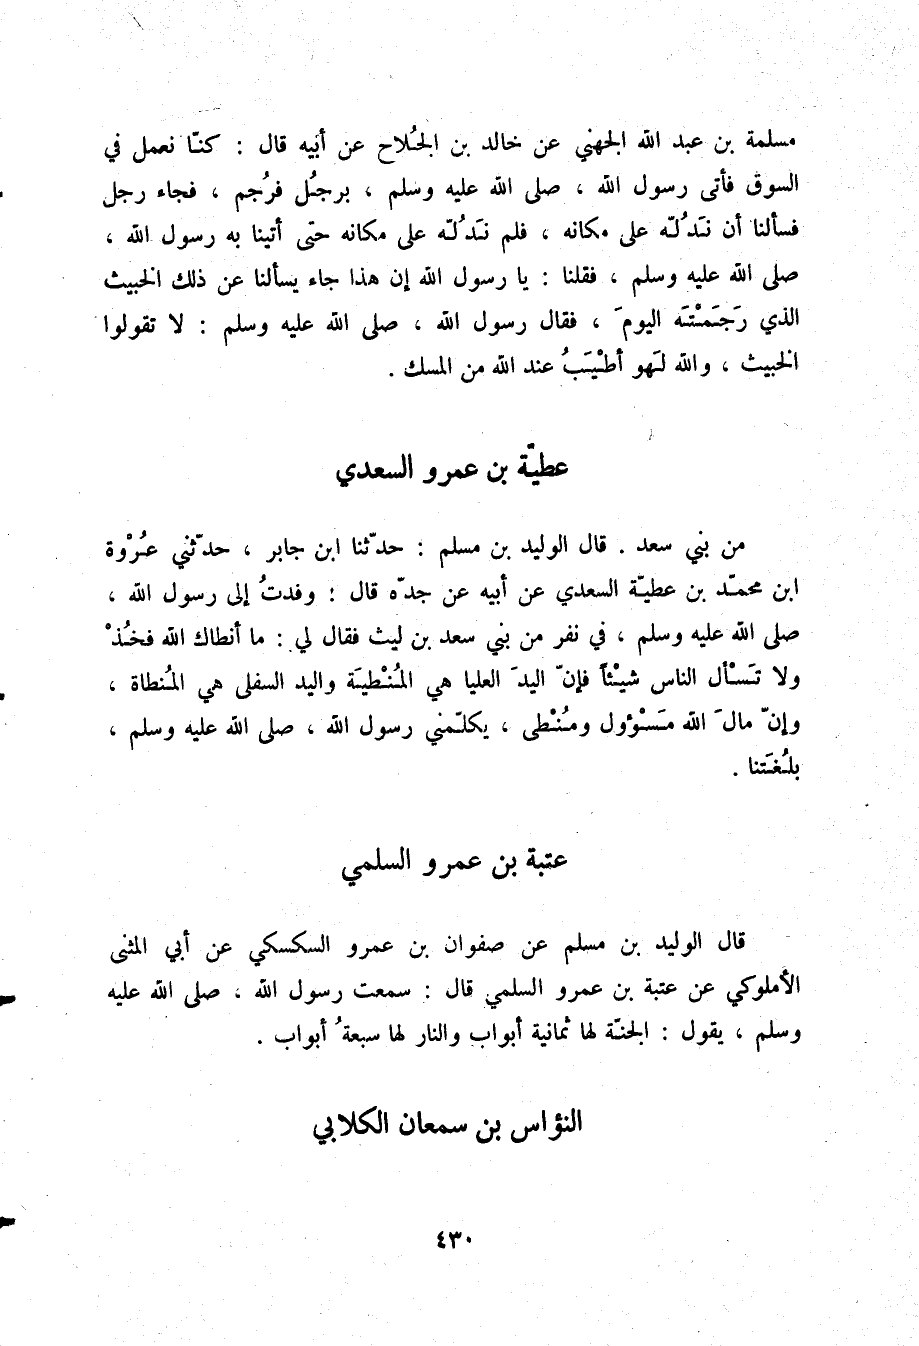 مسلمة بن عبد الله الجهني عن خالد بن الجُلاح عن أبيه قال : كنّا نعمل في
السوق فأتى رسول الله ، صلى الله عليه وسلم ، برجُل فرُجم ، فجاء رجل
فسألنا أن نَدُلّه على مكانه ، فلم نَدُلّه على مكانه حتى أتينا به رسول الله ،
صلى الله عليه وسلم ، فقلنا : يا رسول الله إن هذا جاء يسألنا عن ذلك الخبيث
الذي رَجَمْتَه اليومَ ، فقال رسول الله ، صلى الله عليه وسلم : لا تقولوا
الخبيث ، والله لَهو أطْيَبُ عند الله من المسك .
عطيّة بن عمرو السعدي
من بني سعد . قال الوليد بن مسلم : حدّثنا ابن جابر ، حدّثني عُرْوة
ابن محمّد بن عطيّة السعدي عن أبيه عن جدّه قال : وفدتُ إلى رسول الله ،
صلى الله عليه وسلم ، في نفر من بني سعد بن ليث فقال لي : ما أنطاك الله فخُذْ
ولا تَسْأل الناس شيْئاً فإنّ اليدَ العليا هي المُنْطيَة واليد السفلى هي المُنطاة ،
وإنّ مالَ الله مَسْؤول ومُنْطى ، يكلّمني رسول الله ، صلى الله عليه وسلم ،
بلُغَتنا .
عتبة بن عمرو السلمي
قال الوليد بن مسلم عن صفوان بن عمرو السكسكي عن أبي المثنى
الأملوكي عن عتبة بن عمرو السلمي قال : سمعت رسول الله ، صلى الله عليه
وسلم ، يقول : الجنّة لها ثمانية أبواب والنار لها سبعةُ أبواب .
النؤاس بن سمعان الكلابي
٤٣٠